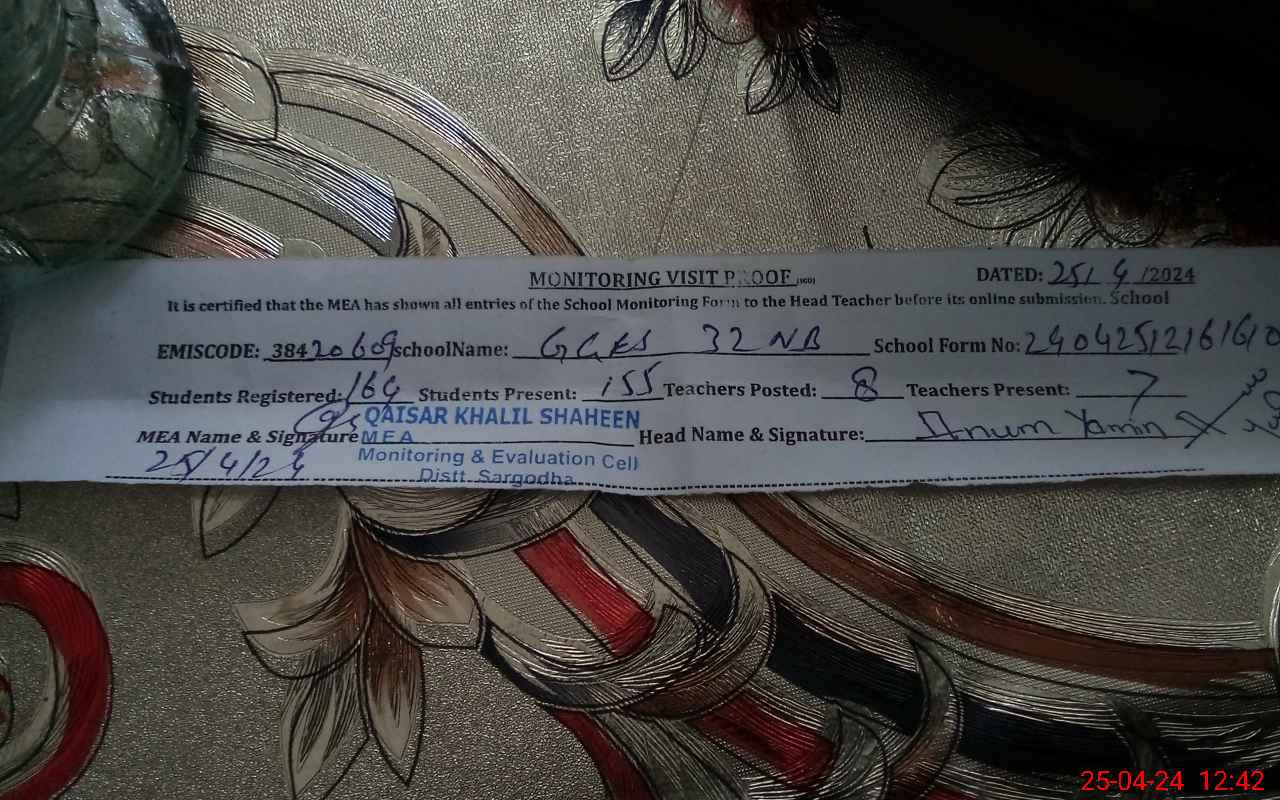 MONITORING VISIT PROOF DATED: 25/4/2024
It is certified that the MEA has shown all entries of the School Monitoring Form to the Head Teacher before its online submission. School
EMISCODE: 38420609 schoolName: GGES 32 NB School Form No:
Students Registered: 164 Students Present: 155 Teachers Posted: 8 Teachers Present: 7
QAISAR KHALIL SHAHEEN
MEA Name & Signature MEA Head Name & Signature: Anum Yamin
25/4/24 Monitoring & Evaluation Cell
Distt. Sargodha
25-04-24 12:42